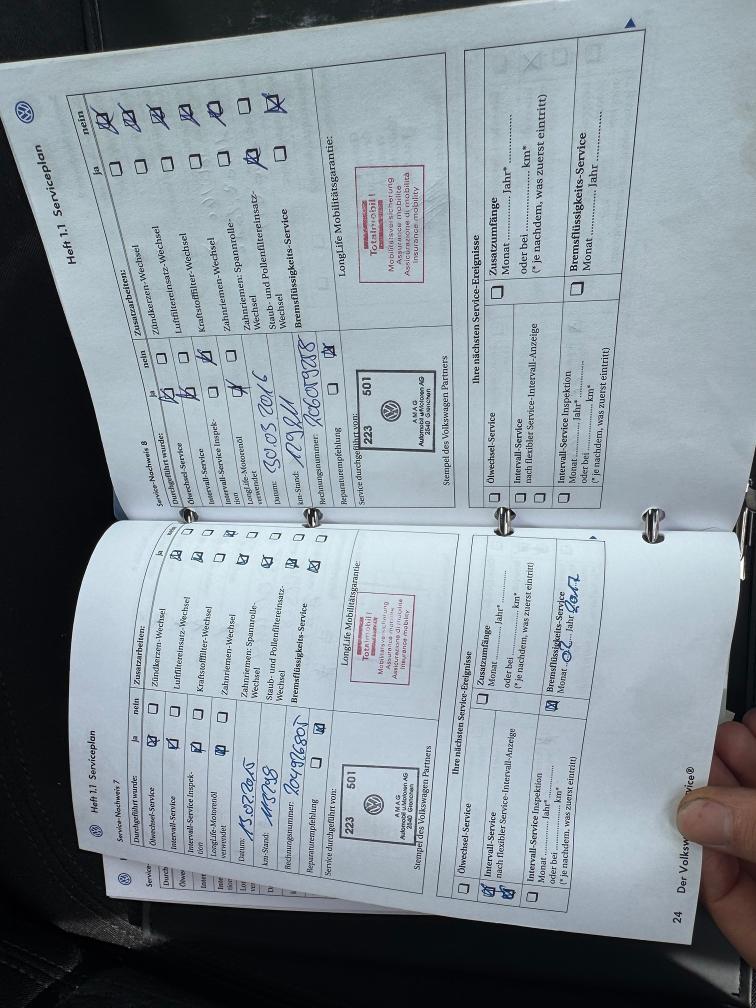 Heft 1.1 Serviceplan
Service-Nachweis 7
Durchgeführt wurde: ja nein
Ölwechsel-Service
Intervall-Service
Intervall-Service Inspek-
tion
LongLife-Motorenöl
verwendet
Datum: 13.02.2015
km-Stand: 113248
Rechnungsnummer: 204926805
Reparaturempfehlung
Service durchgeführt von:
223 501
AMAG
Automobil u Motoren AG
2540 Grenchen
Stempel des Volkswagen Partners
Zusatzarbeiten: ja nein
Zündkerzen-Wechsel
Luftfiltereinsatz-Wechsel
Kraftstoffilter-Wechsel
Zahnriemen-Wechsel
Zahnriemen: Spannrolle-
Wechsel
Staub- und Pollenfiltereinsatz-
Wechsel
Bremsflüssigkeits-Service
LongLife Mobilitätsgarantie:
Totalmobil!
Mobilitätsversicherung
Assurance mobilité
Assicurazione di mobilità
Insurance mobility
Ihre nächsten Service-Ereignisse
Ölwechsel-Service
Intervall-Service
nach flexibler Service-Intervall-Anzeige
Intervall-Service Inspektion
Monat .......... Jahr* ..........
oder bei .......... km*
(* je nachdem, was zuerst eintritt)
Zusatzumfänge
Monat .......... Jahr* ..........
oder bei .......... km*
(* je nachdem, was zuerst eintritt)
Bremsflüssigkeits-Service
Monat 02 Jahr 2017
24 Der Volksw
Heft 1.1 Serviceplan
Service-Nachweis 8
Durchgeführt wurde: ja nein
Ölwechsel-Service
Intervall-Service
Intervall-Service Inspek-
tion
LongLife-Motorenöl
verwendet
Datum: 30.03.2016
km-Stand: 129211
Rechnungsnummer: 206059258
Reparaturempfehlung
Service durchgeführt von:
223 501
AMAG
Automobil u Motoren AG
2540 Grenchen
Stempel des Volkswagen Partners
Zusatzarbeiten: ja nein
Zündkerzen-Wechsel
Luftfiltereinsatz-Wechsel
Kraftstoffilter-Wechsel
Zahnriemen-Wechsel
Zahnriemen: Spannrolle-
Wechsel
Staub- und Pollenfiltereinsatz-
Wechsel
Bremsflüssigkeits-Service
LongLife Mobilitätsgarantie:
Totalmobil!
Mobilitätsversicherung
Assurance mobilité
Assicurazione di mobilità
Insurance mobility
Ihre nächsten Service-Ereignisse
Ölwechsel-Service
Intervall-Service
nach flexibler Service-Intervall-Anzeige
Intervall-Service Inspektion
Monat .......... Jahr* ..........
oder bei .......... km*
(* je nachdem, was zuerst eintritt)
Zusatzumfänge
Monat .......... Jahr* ..........
oder bei .......... km*
(* je nachdem, was zuerst eintritt)
Bremsflüssigkeits-Service
Monat .......... Jahr ..........